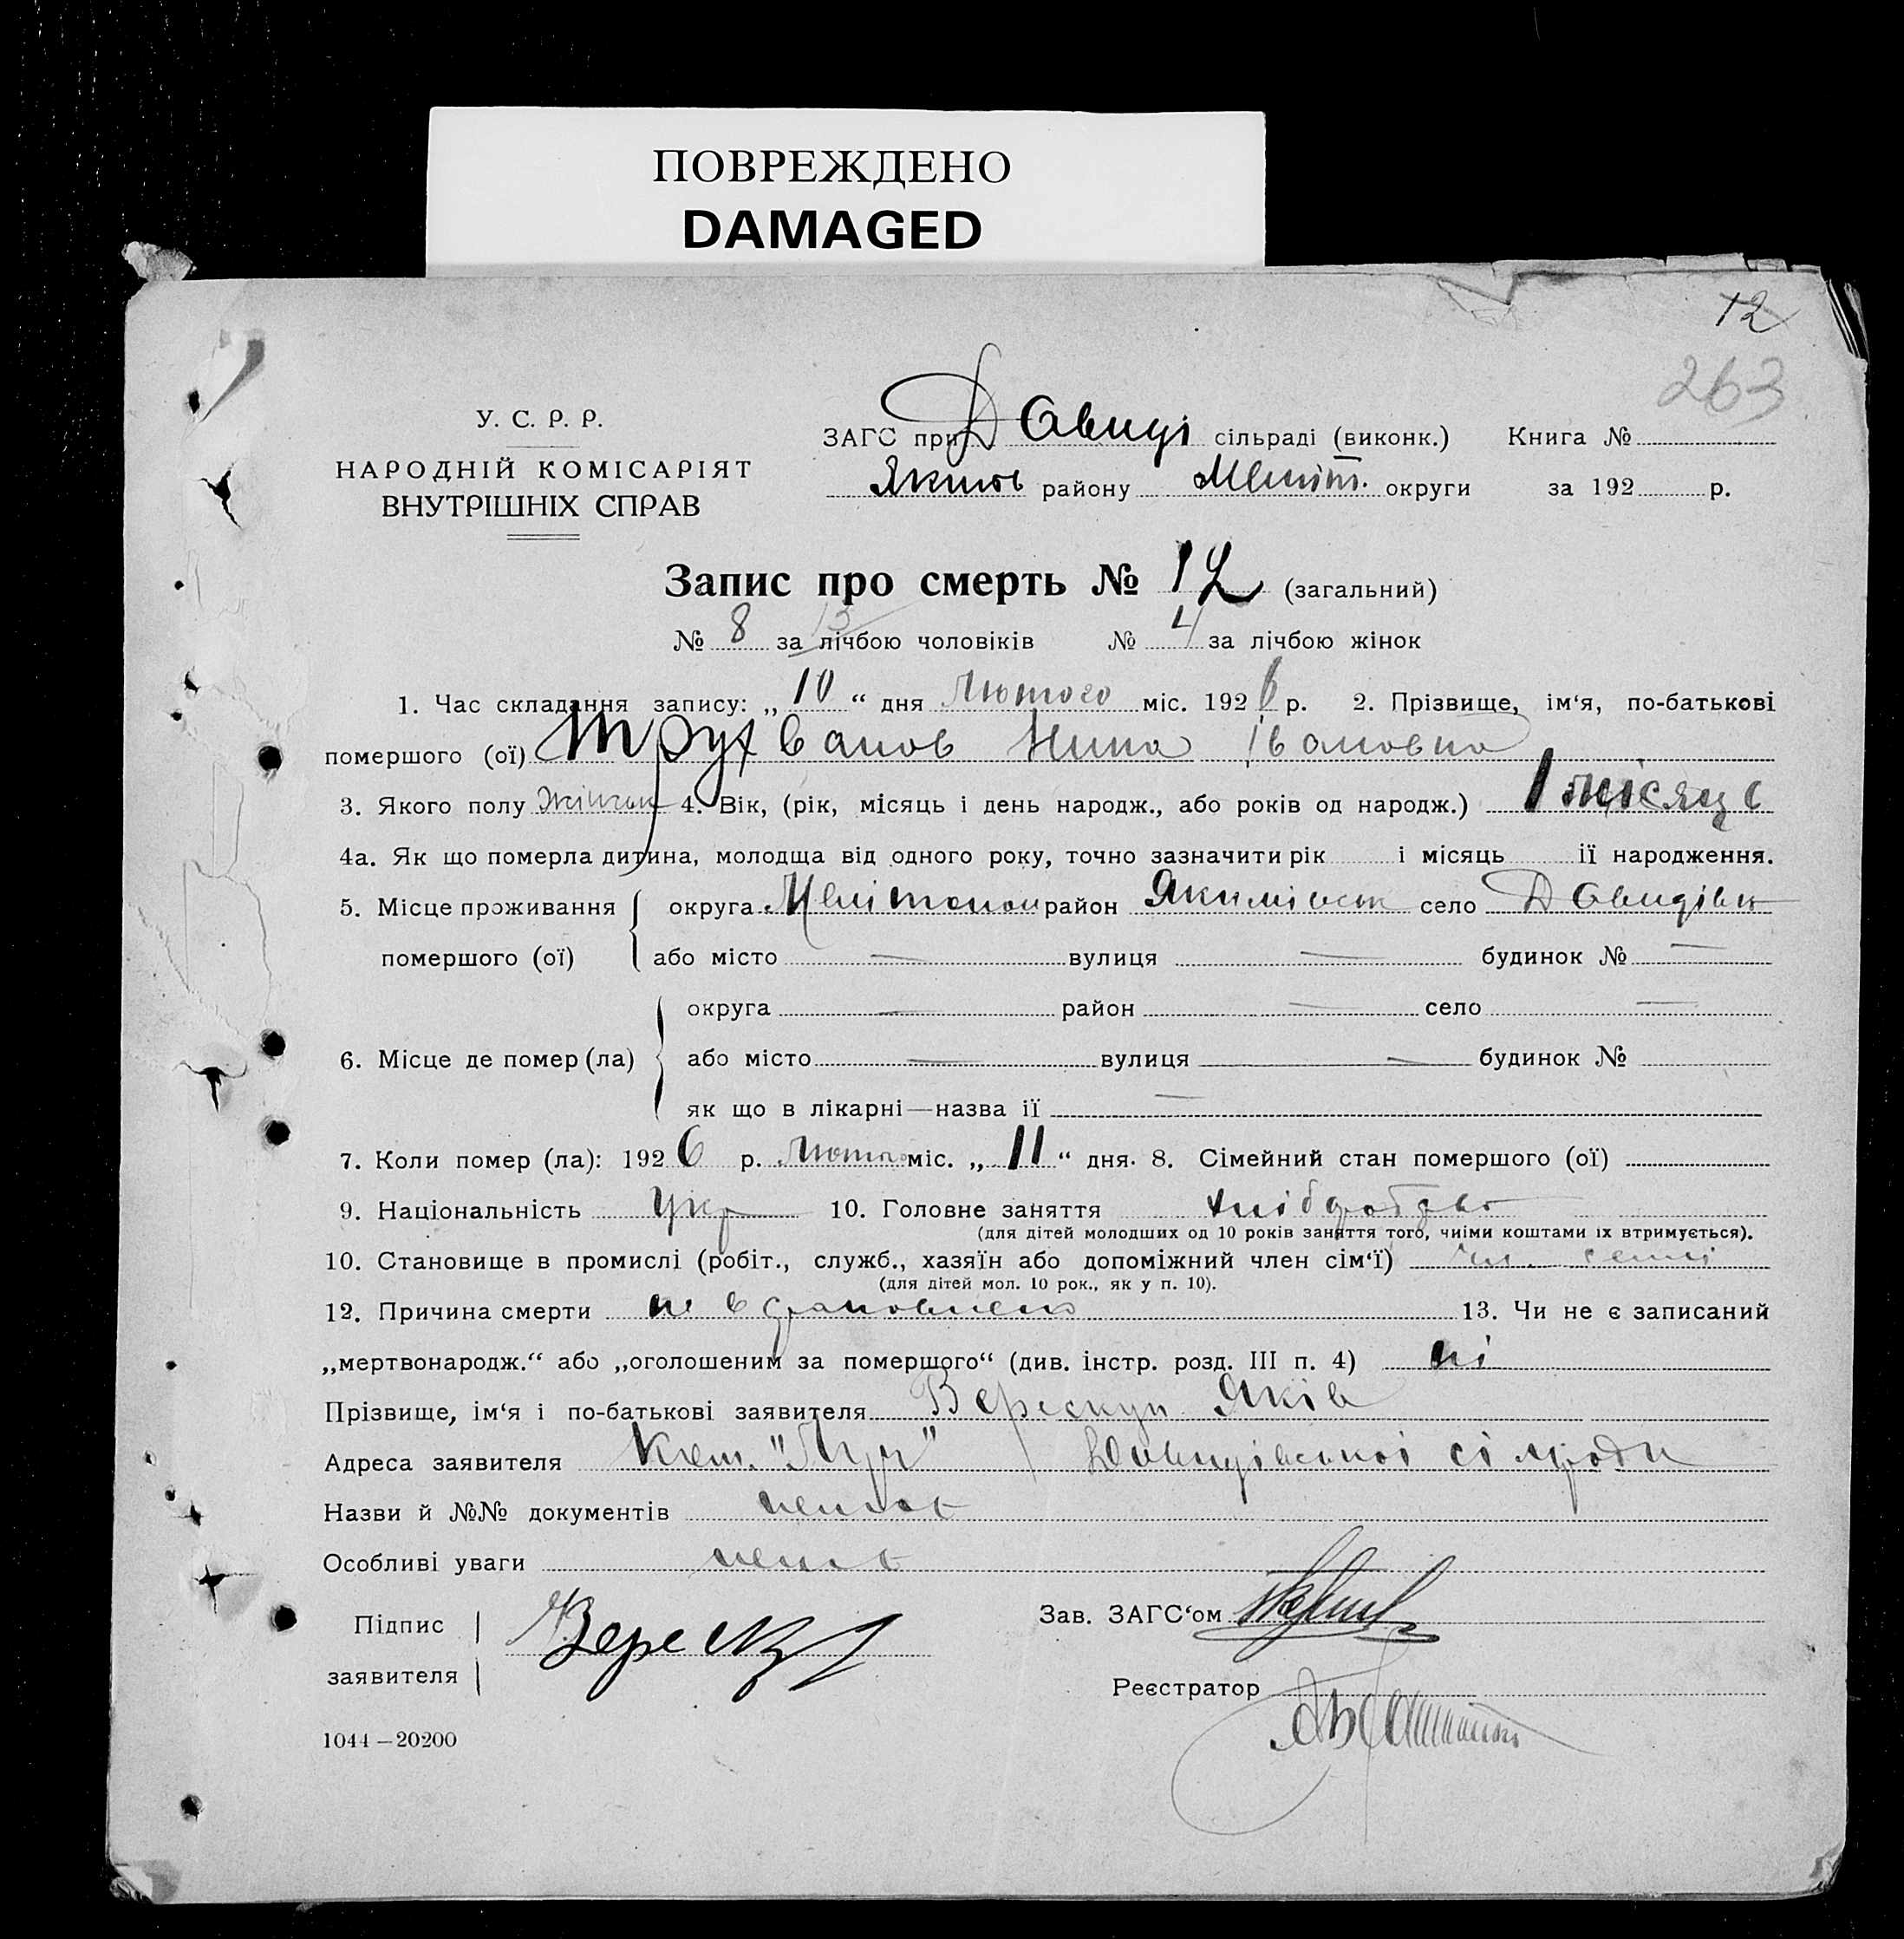 ПОВРЕЖДЕНО
DAMAGED
12
263
У. С. Р. Р.
НАРОДНІЙ КОМІСАРІЯТ
ВНУТРІШНІХ СПРАВ
ЗАГС при Давиді сільраді (виконк.) Книга №
Яким району Меліт. округи за 192 р.
Запис про смерть № 12 (загальний)
№ 8 за лічбою чоловіків № 4 за лічбою жінок
1. Час складання запису: „ 10 “ дня Лютого міс. 192 6 р. 2. Прізвище, ім‘я, по-батькові
помершого (ої) Нина Івановна
3. Якого полу 4. Вік, (рік, місяць і день народж., або років од народж.) 1 місяць
4а. Як що померла дитина, молодща від одного року, точно зазначити рік і місяць ії народження.
5. Місце проживання округа Мелітопол район Якимівськ село Давидівк
помершого (ої) або місто — вулиця — будинок № —
округа — район — село —
6. Місце де помер (ла) або місто — вулиця — будинок №
як що в лікарні—назва ії —
7. Коли помер (ла): 192 6 р. Лютого міс. „ 11 “ дня. 8. Сімейний стан помершого (ої)
9. Національність Укр 10. Головне заняття хліборобство
(для дітей молодших од 10 років заняття того, чиїми коштами їх втримується).
10. Становище в промислі (робіт., служб., хазяїн або допоміжний член сім‘ї) чл. семі
(для дітей мол. 10 рок., як у п. 10).
12. Причина смерти не встановлено 13. Чи не є записаний
„мертвонародж.“ або „оголошеним за помершого“ (див. інстр. розд. III п. 4) ні
Прізвище, ім‘я і по-батькові заявителя Верескун Яків
Адреса заявителя "Луч" Давидівської сілради
Назви й №№ документів немає
Особливі уваги немає
Підпис
заявителя
Зав. ЗАГС‘ом
Реєстратор
1044—20200